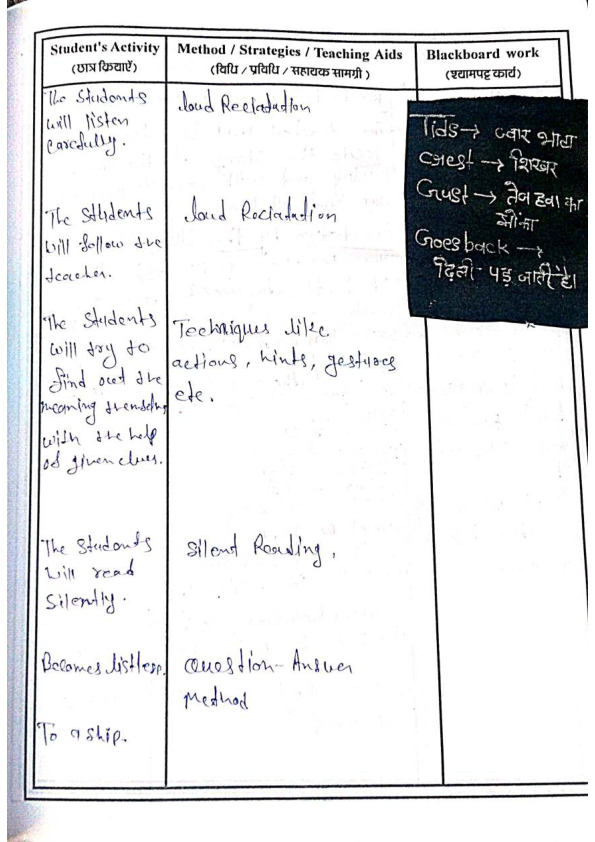 Student's Activity
(छात्र क्रियाऐं)
Method / Strategies / Teaching Aids
(विधि / प्रविधि / सहायक सामग्री )
Blackboard work
(श्यामपट्ट कार्य)
The Students
will listen
carefully.
loud Recitation
Tids→ ज्वार भाटा
Crest → शिखर
Gust → तेज हवा का
झौंका
Goes back →
ढ़िली पड़ जाती है।
The Students
will follow the
teacher.
loud Recitation
The Students
will try to
find out the
meaning
with the help
of given clues.
Techniques like
actions, hints, gestures
etc.
The Students
will read
Silently.
Silent Reading.
Becomes listless.
Question-Answer
Method
To a ship.